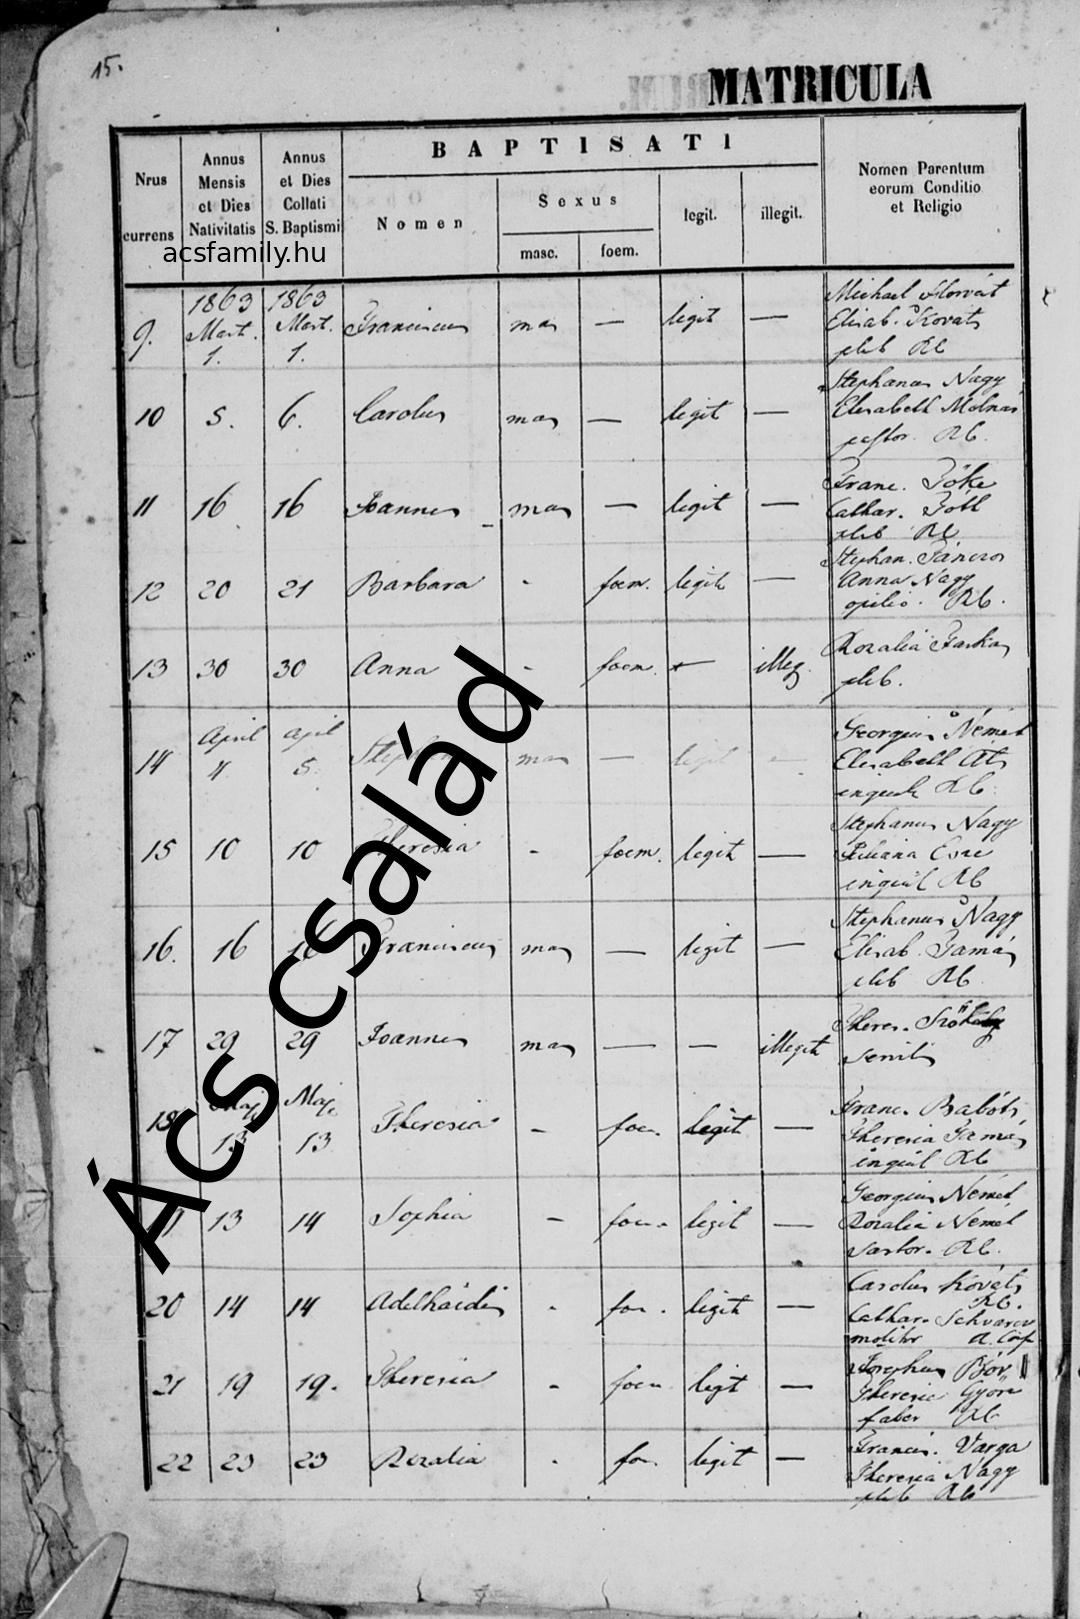 15.
MATRICULA
BAPTISATI
Nrus currens
Annus Mensis et Dies Nativitatis
Annus et Dies Collati S. Baptismi
Nomen
Sexus
masc.
foem.
legit.
illegit.
Nomen Parentum eorum Conditio et Religio
acsfamily.hu
9. 1863 Mart. 1. 1863 Mart. 1. Franciscus mas — legit — Michael Horvát
Elisab. Kovats
pleb RC
10 5. 6. Carolus mas — legit — Stephanus Nagy
Elisabeth Molnár
pastor. RC.
11 16 16 Joannes mas — legit — Franc. Tőke
Cathar. Tóth
pleb RC
12 20 21 Barbara - foem. legit — Stephan.
Anna Nagy
opilio. RC.
13 30 30 Anna - foem. — illeg. Rozalia Farkas
pleb.
14 April 4 April 5. mas — legit — Georgius Német
Elisabeth
RC.
15 10 10 Theresia - foem. legit — Stephanus Nagy
Juliana
inquil RC
16. 16 16 Franciscus mas — legit — Stephanus Nagy
Elisab. Tamás
pleb RC
17 29 29 Joannes mas — — illegit Theres.
servilis
18 Maj. 13 Maj. 13 Theresia - foe. legit — Franc. Babóts
Theresia Tamás
inquil RC
13 14 Sophia - foem. legit — Georgius Német
Rozalia Német
RC.
20 14 14 Adelhaidis - foe. legit — Carolus Kováts
RC.
Cathar.
molitor A. Conf
21 19 19. Theresia - foem legit — Josephus
Theresia Győri
faber RC
22 23 23 Rozalia - foe. legit — Francis. Varga
Theresia Nagy
pleb RC
Ács család